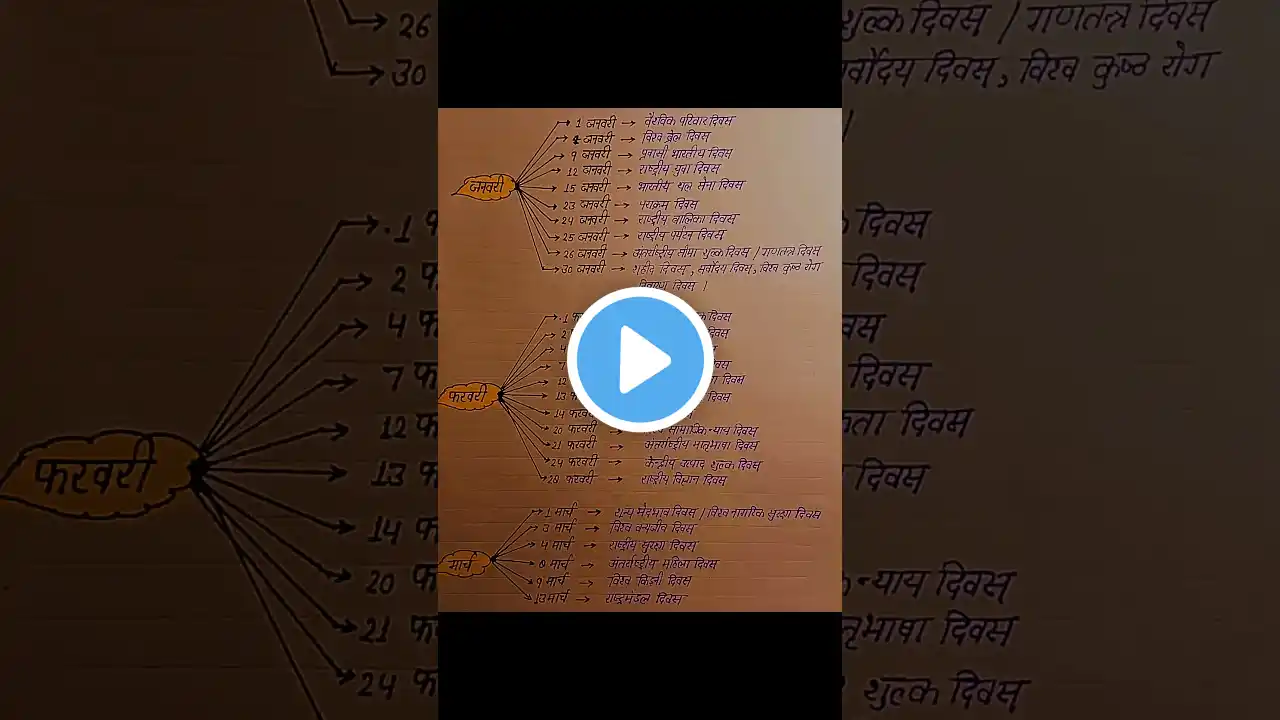 26 शुल्क दिवस / गणतन्त्र दिवस
30 सर्वोदय दिवस, विश्व कुष्ठ रोग
जनवरी
1 जनवरी → वैश्विक परिवार दिवस
4 जनवरी → विश्व ब्रेल दिवस
9 जनवरी → प्रवासी भारतीय दिवस
12 जनवरी → राष्ट्रीय युवा दिवस
15 जनवरी → भारतीय थल सेना दिवस
23 जनवरी → पराक्रम दिवस
24 जनवरी → राष्ट्रीय बालिका दिवस
25 जनवरी → राष्ट्रीय पर्यटन दिवस
26 जनवरी → अंतर्राष्ट्रीय सीमा शुल्क दिवस / गणतन्त्र दिवस
30 जनवरी → शहीद दिवस, सर्वोदय दिवस, विश्व कुष्ठ रोग
निवारण दिवस ।
फरवरी
1 दिवस
2 दिवस
4
7 दिवस
12 दिवस
13 दिवस
14 फरवरी
20 फरवरी → सामाजिक न्याय दिवस
21 फरवरी → अंतर्राष्ट्रीय मातृभाषा दिवस
24 फरवरी → केन्द्रीय उत्पाद शुल्क दिवस
28 फरवरी → राष्ट्रीय विज्ञान दिवस
मार्च
1 मार्च → शून्य भेदभाव दिवस / विश्व नागरिक सुरक्षा दिवस
3 मार्च → विश्व वन्यजीव दिवस
4 मार्च → राष्ट्रीय सुरक्षा दिवस
8 मार्च → अंतर्राष्ट्रीय महिला दिवस
9 मार्च → विश्व किडनी दिवस
13 मार्च → राष्ट्रमंडल दिवस
फरवरी
1 दिवस
2 दिवस
4
7 दिवस
12 दिवस
13 दिवस
14
20 न्याय दिवस
21 दिवस
24 शुल्क दिवस